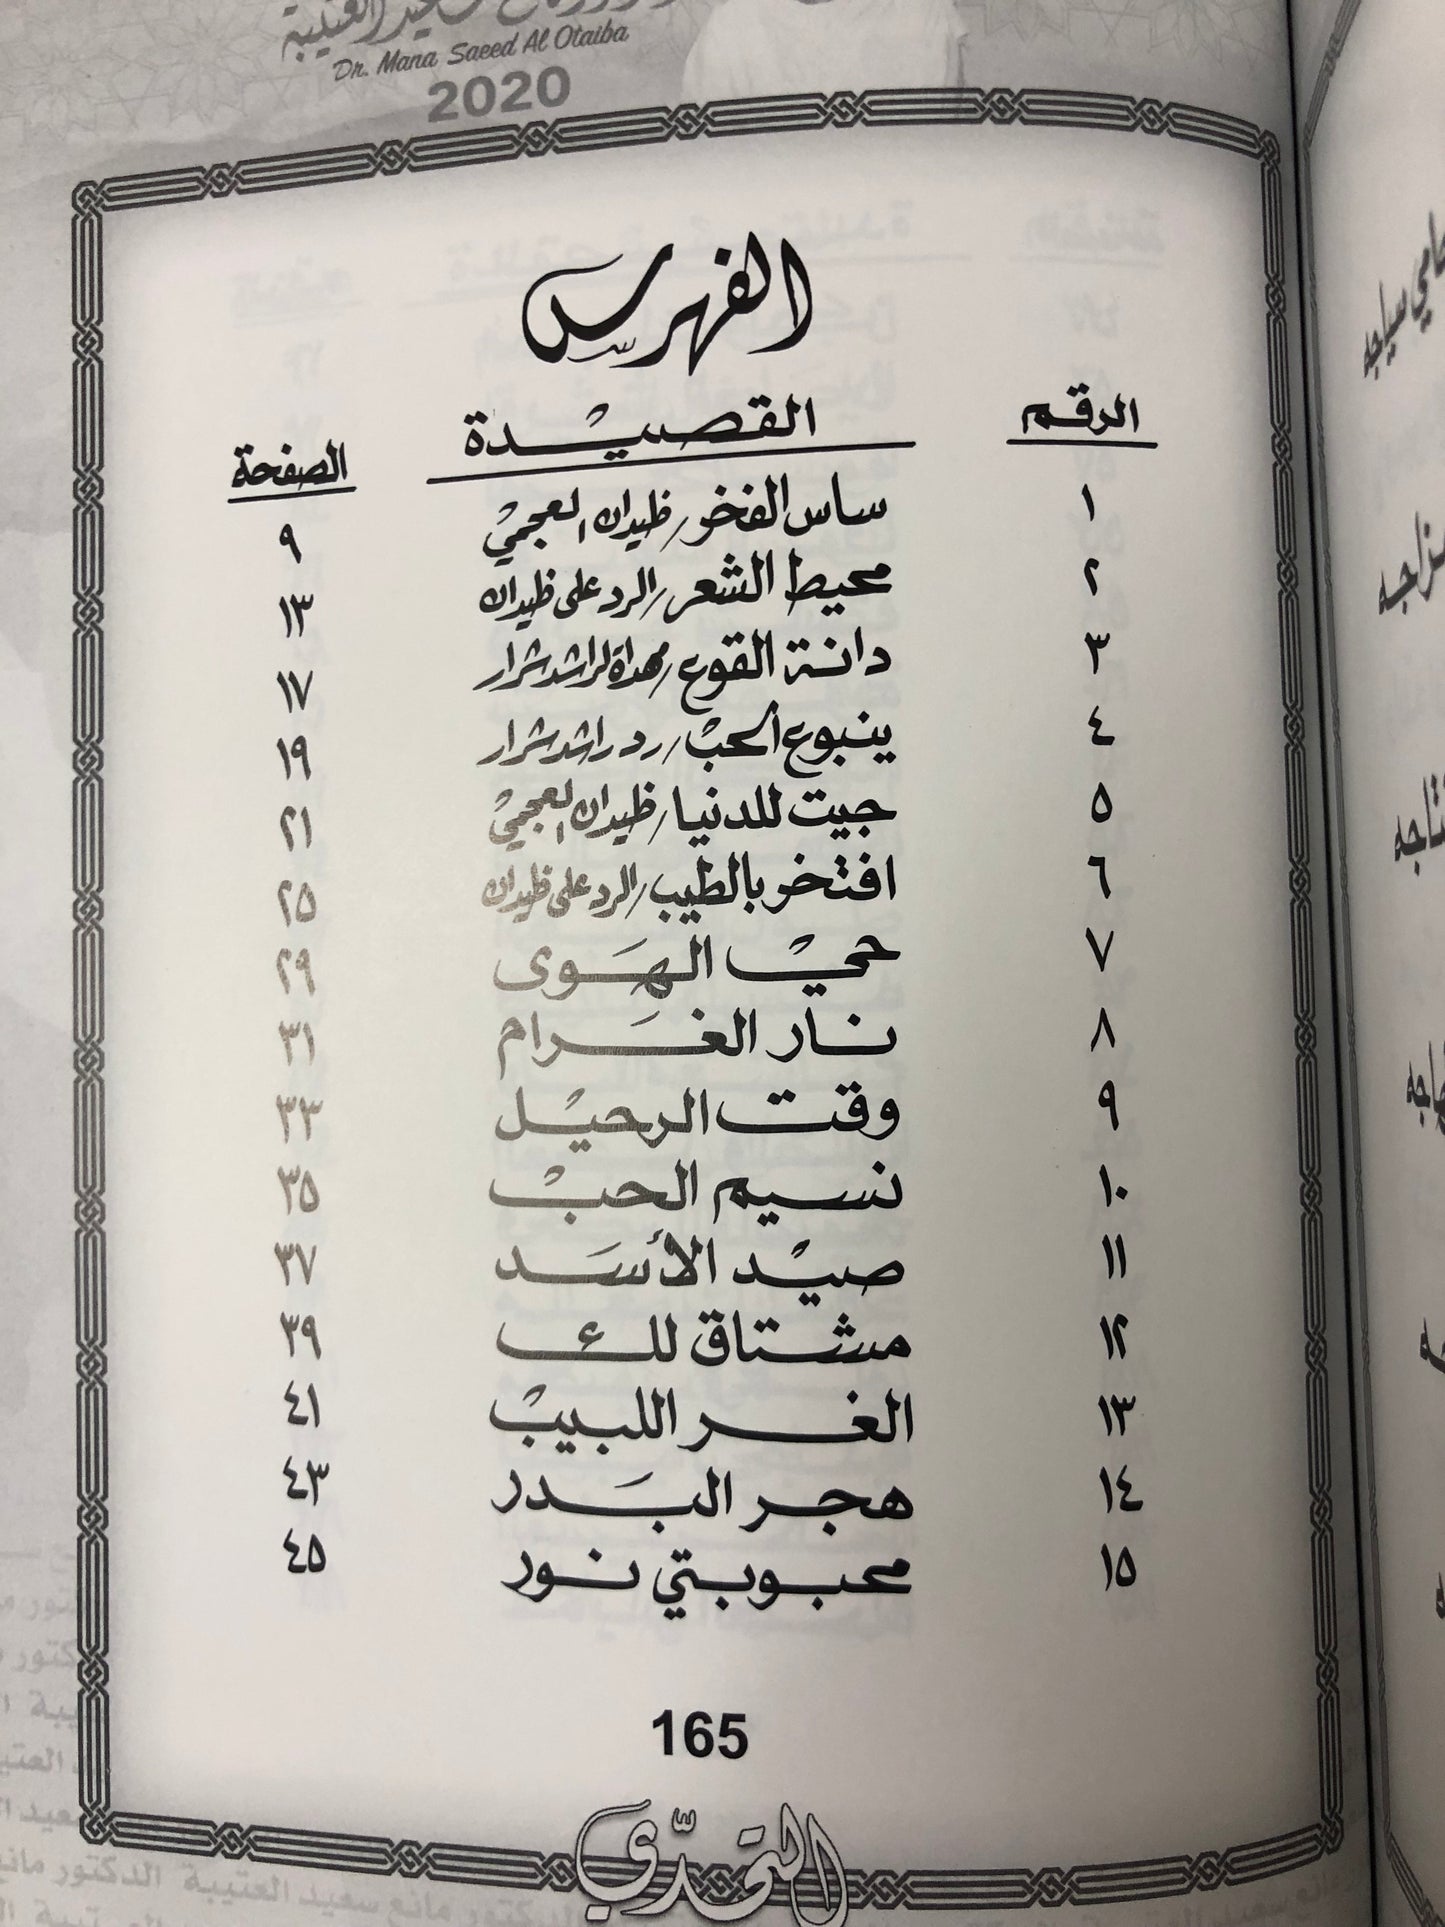 سعيد العتيبة
Dr. Mana Saeed Al Otaiba
2020
الفهرس
الرقم القصيدة الصفحة
١ ساس الفخر/ظيدان العجمي ٩
٢ محيط الشعر/الرد على ظيدان ١٣
٣ دانة القوع/مهداة لراشد شرار ١٧
٤ ينبوع الحب/رد راشد شرار ١٩
٥ جيت للدنيا/ظيدان العجمي ٢١
٦ افتخر بالطيب/الرد على ظيدان ٢٥
٧ حي الهوى ٢٩
٨ نار الغرام ٣١
٩ وقت الرحيل ٣٣
١٠ نسيم الحب ٣٥
١١ صيد الأسد ٣٧
١٢ مشتاق لك ٣٩
١٣ الغر اللبيب ٤١
١٤ هجر البدر ٤٣
١٥ محبوبتي نور ٤٥
165
التحدّي
سعيد العتيبة الدكتور مانع سعيد العتيبة الدكتور مانع